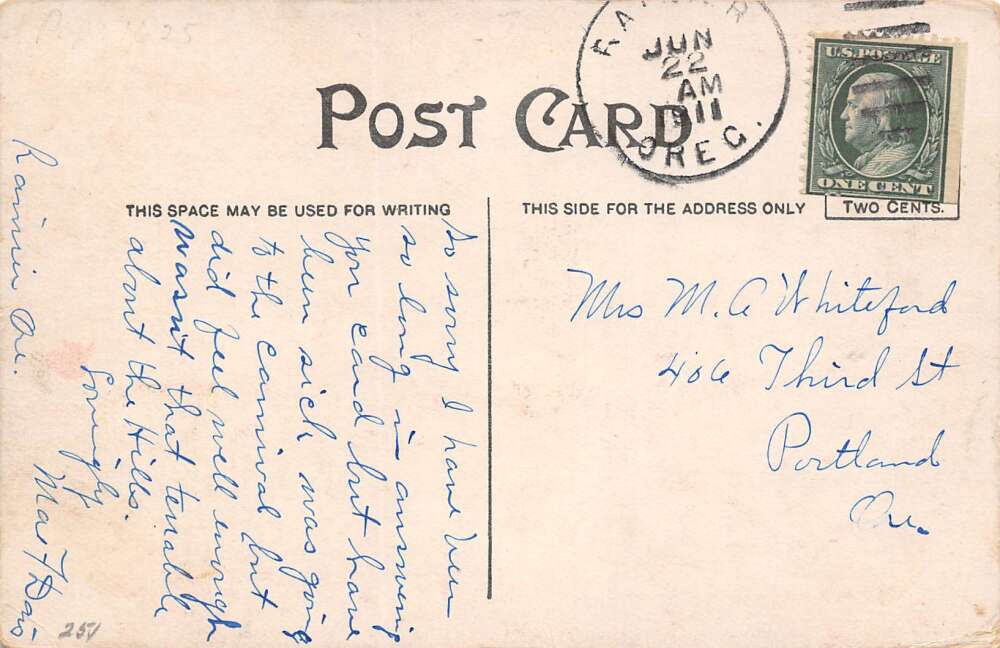 POST CARD
JUN
22
AM
1911
OREG.
U.S. POSTAGE
ONE CENT
TWO CENTS.
THIS SPACE MAY BE USED FOR WRITING
THIS SIDE FOR THE ADDRESS ONLY
Rainier Ore.
So sorry I have been
so long in answering
your card but have
been sick, was going
to the carnival but
did feel well enough
wasn't that terrible
about the Hills.
Lovingly
Mae
Mrs M. A Whiteford
406 Third St
Portland
Ore.
251